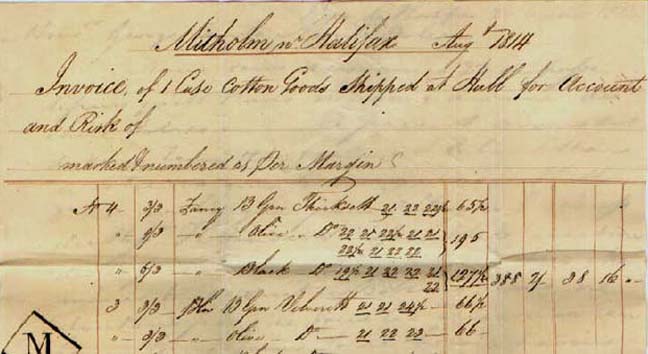 Mitholm nr Halifax Augt 1814
Invoice of 1 Case Cotton Goods Shipped at Hull for Account
and Risk of
marked & numbered as Per Margin
No 4 3/3 Fancy B Grn Thicksett 21 22 22½ 65½
" 9/3 " Olive Do 22 21 22½ 21 21
22½ 21 22 22 195
" 6/3 " Black Do 19½ 21 22 22 21
22 127½ 388 28 16 "
3 3/3 B Grn Velverett 21 21 24½ 66½
" 3/3 " Olive Do 21 22 23 66
M